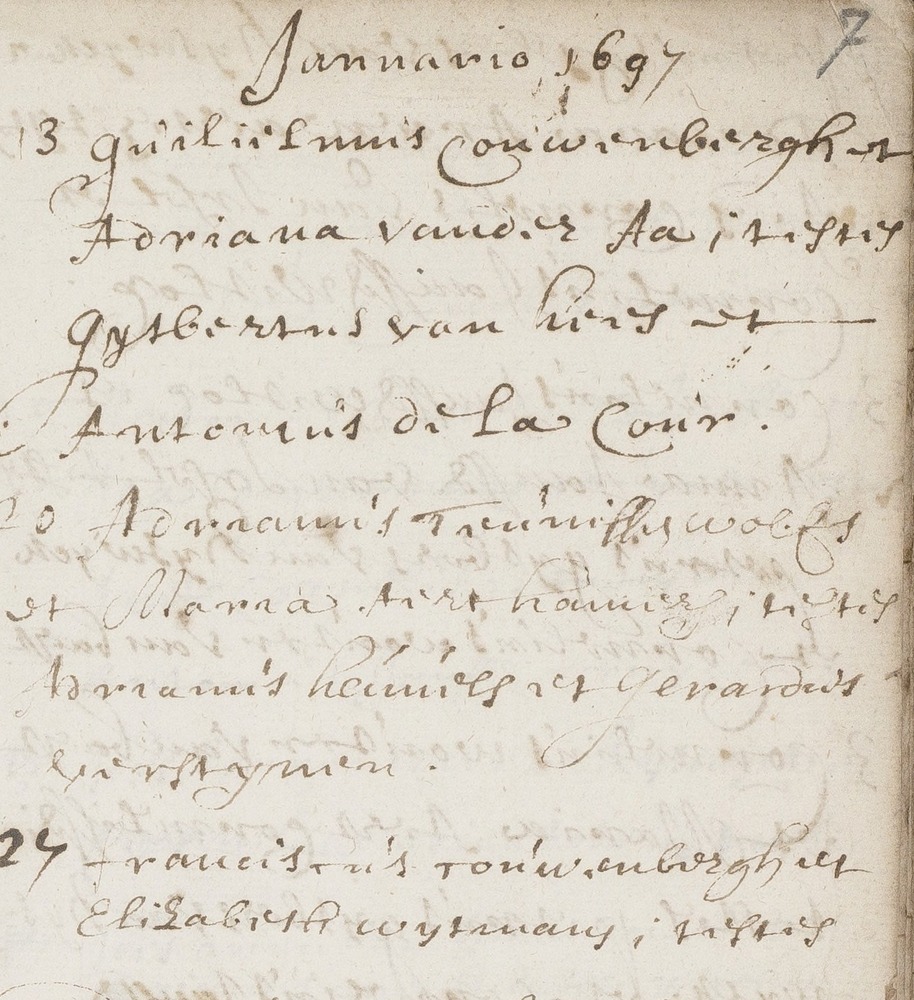 7
Januario 1697
13 Guilielmus Couwenbergh et
Adriana vander Aa ; testes
Gysbertus van hees et
Antonius de la Cour .
20 Adrianus Teunisses wolfs
et Maria Aert ; testes
Adrianus heuvels et Gerardus
verstynen .
27 franciscus couwenbergh et
Elizabeth wytmans ; testes